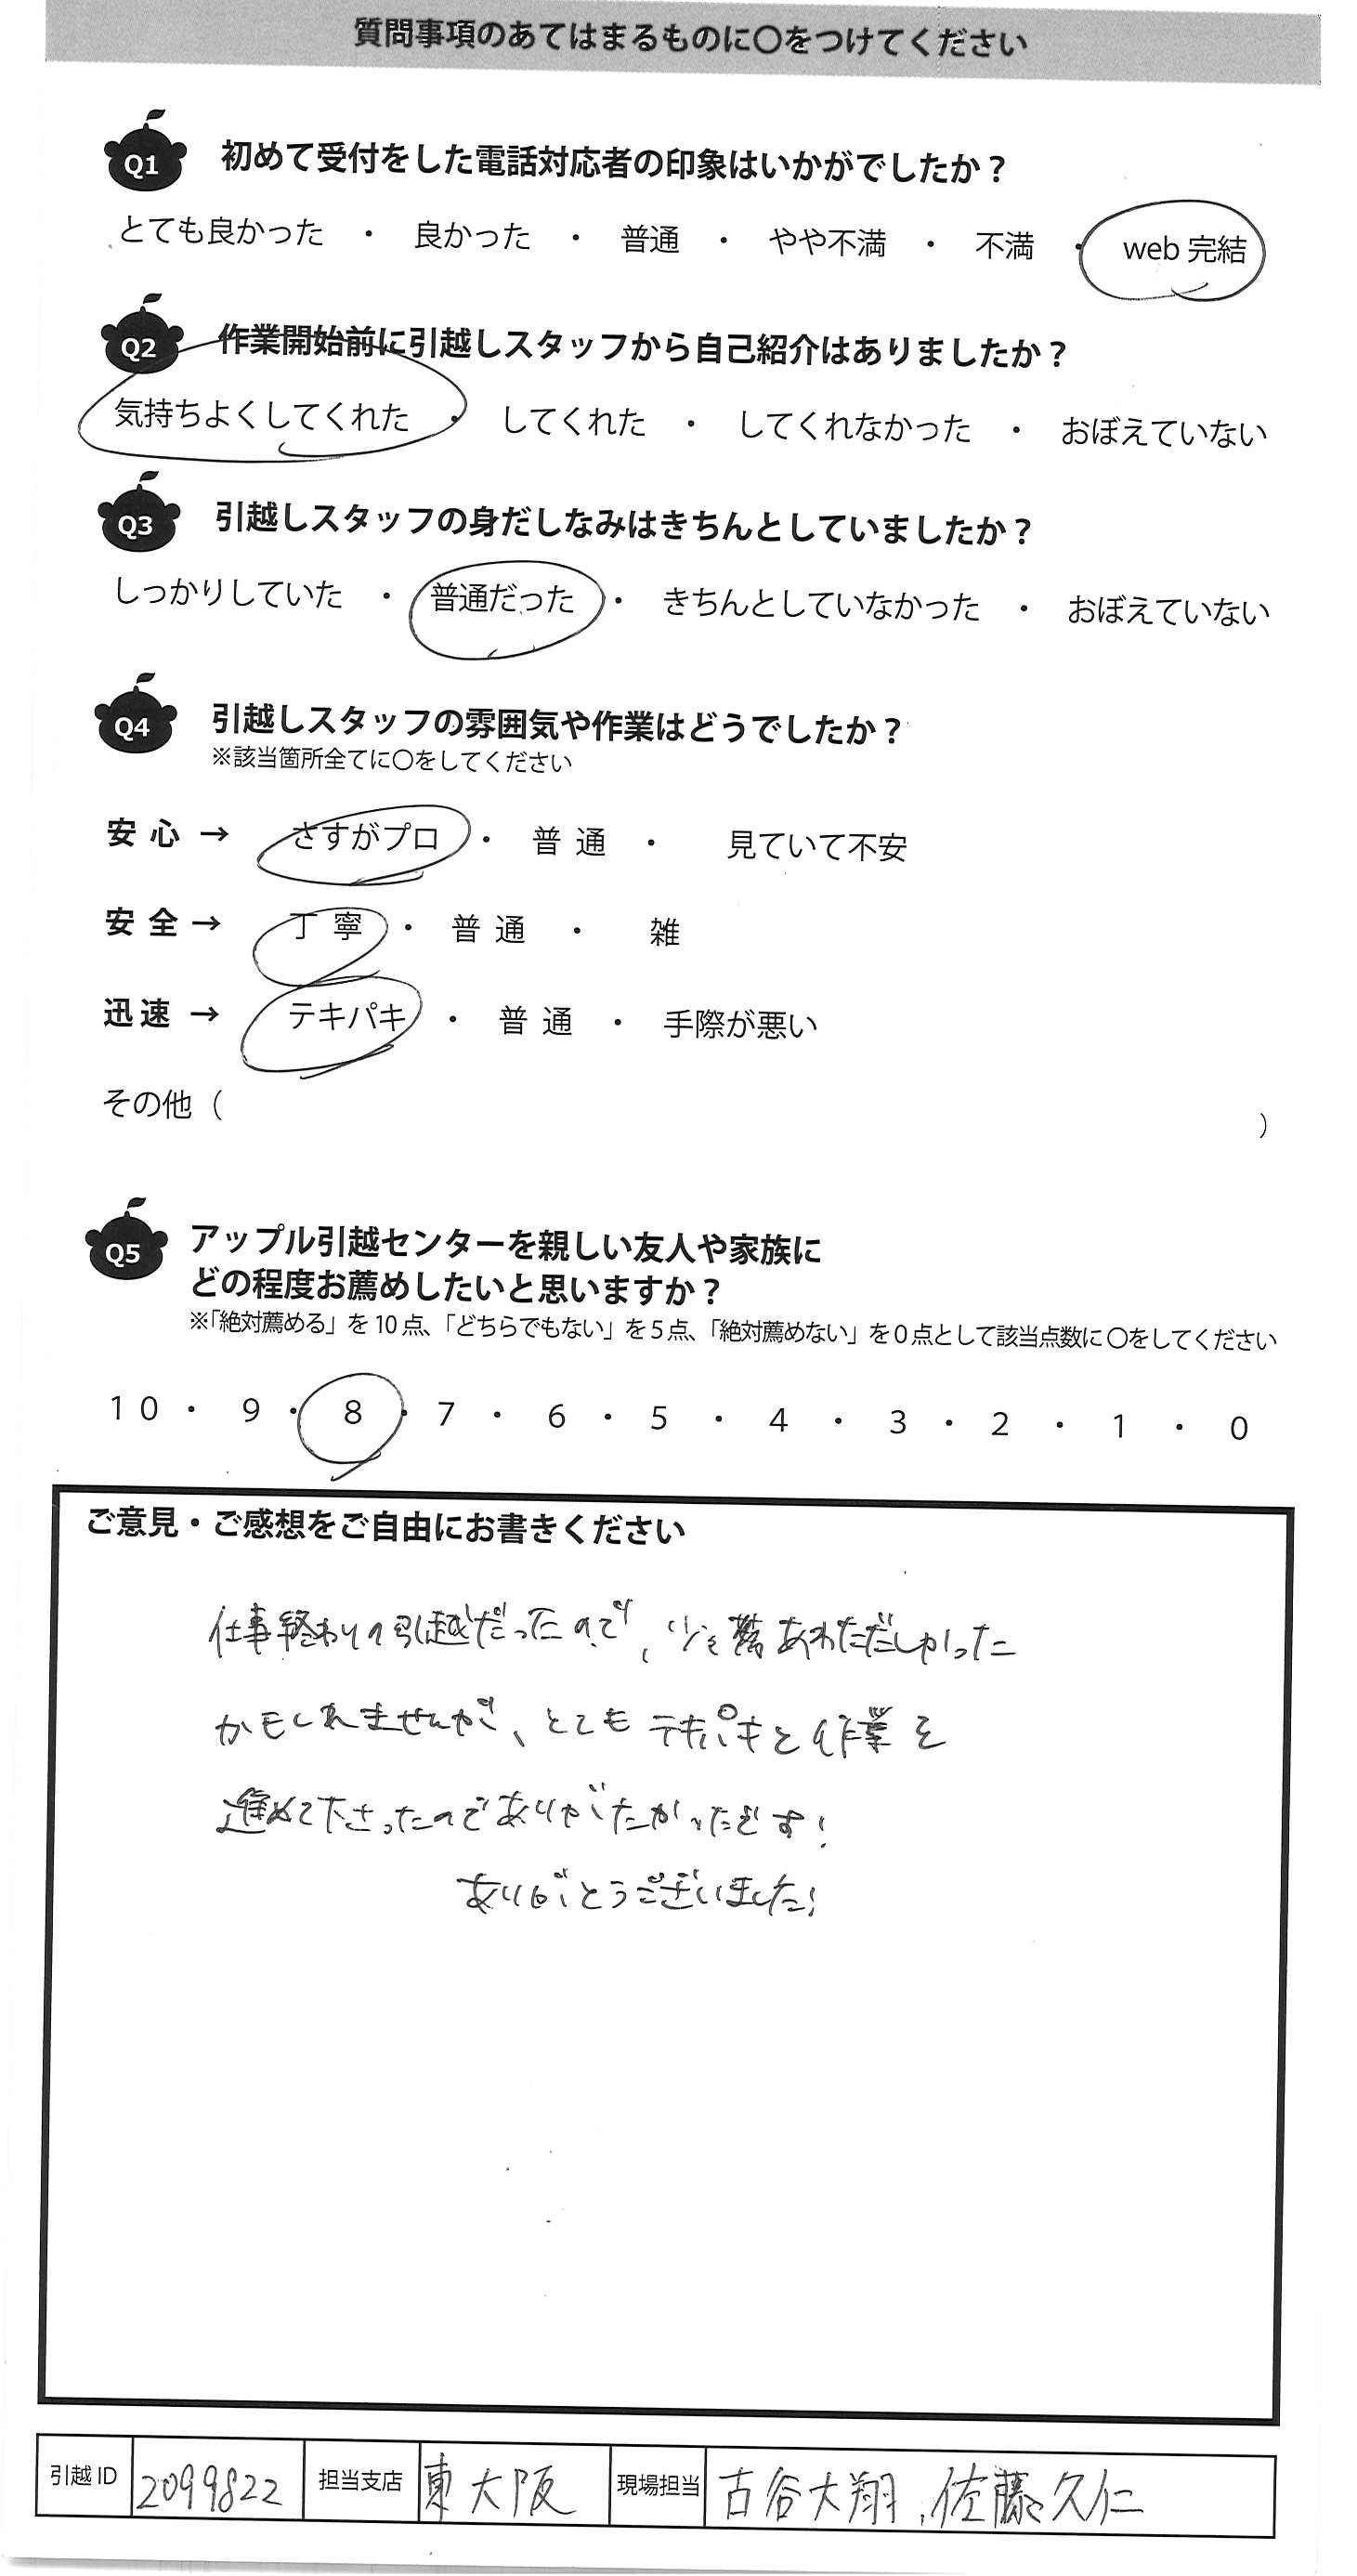 質問事項のあてはまるものに〇をつけてください
Q1 初めて受付をした電話対応者の印象はいかがでしたか？
とても良かった ・ 良かった ・ 普通 ・ やや不満 ・ 不満 ・ web 完結
Q2 作業開始前に引越しスタッフから自己紹介はありましたか？
気持ちよくしてくれた ・ してくれた ・ してくれなかった ・ おぼえていない
Q3 引越しスタッフの身だしなみはきちんとしていましたか？
しっかりしていた ・ 普通だった ・ きちんとしていなかった ・ おぼえていない
Q4 引越しスタッフの雰囲気や作業はどうでしたか？
※該当箇所全てに〇をしてください
安心 → さすがプロ ・ 普通 ・ 見ていて不安
安全 → 丁寧 ・ 普通 ・ 雑
迅速 → テキパキ ・ 普通 ・ 手際が悪い
その他（ ）
Q5 アップル引越センターを親しい友人や家族に
どの程度お薦めしたいと思いますか？
※「絶対薦める」を10点、「どちらでもない」を5点、「絶対薦めない」を0点として該当点数に〇をしてください
10 ・ 9 ・ 8 ・ 7 ・ 6 ・ 5 ・ 4 ・ 3 ・ 2 ・ 1 ・ 0
ご意見・ご感想をご自由にお書きください
仕事終わりの引越だったので、少々あわただしかった
かもしれませんが、とてもテキパキと作業を
進めて下さったのでありがたかったです!
ありがとうございました!
引越ID 2099822 担当支店 東大阪 現場担当 古谷大翔、佐藤久仁